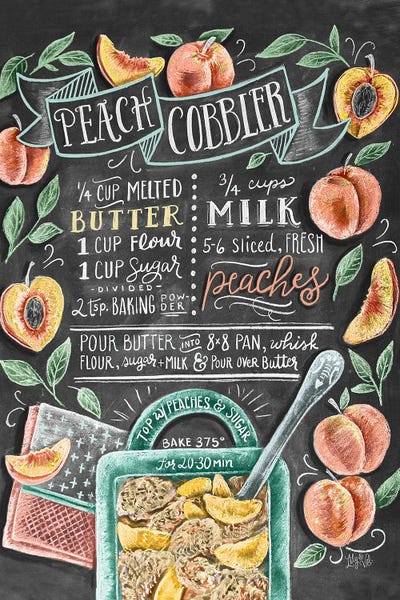 PEACH COBBLER
1/4 CUP MELTED
BUTTER
1 CUP flour
1 CUP Sugar
-DIVIDED-
2 tsp. BAKING POW-DER
3/4 cups
MILK
5-6 sliced, FRESH
peaches
POUR BUTTER INTO 8x8 PAN, whisk
FLOUR, sugar + MILK & POUR OVER Butter
TOP W/ PEACHES & SUGAR
BAKE 375°
for 20-30 min
Lily & Val